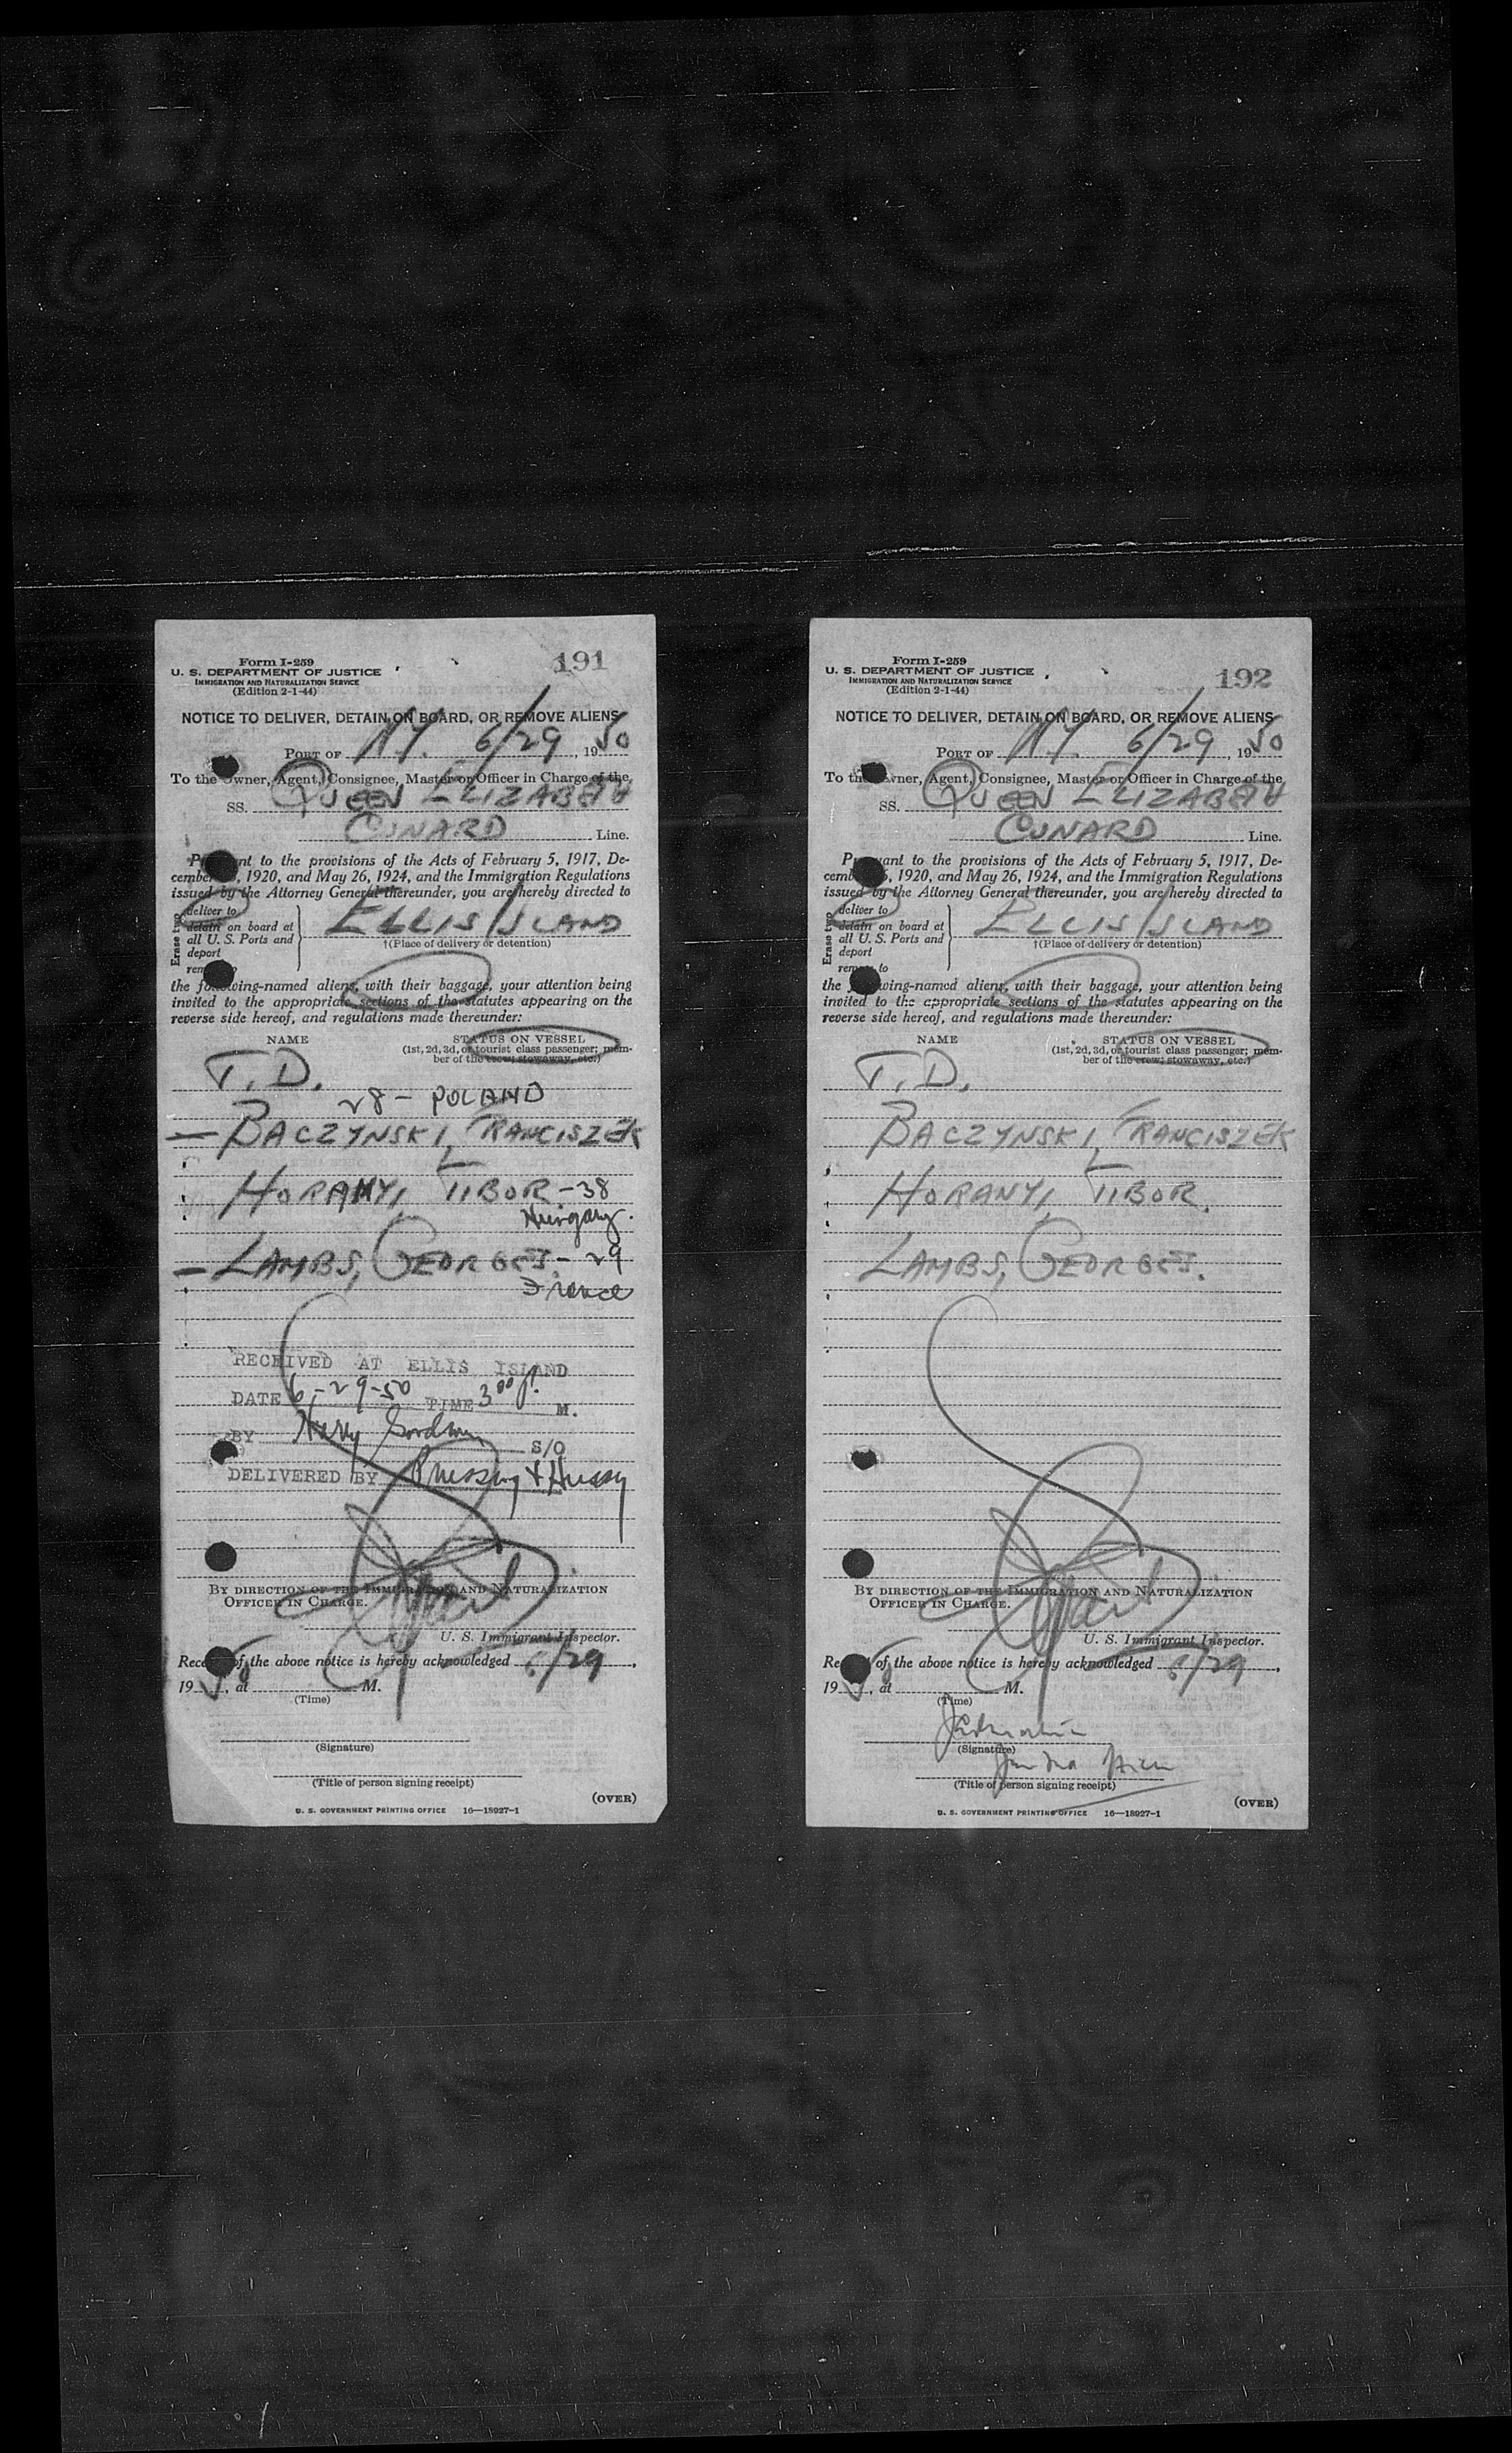 Form I-259
U. S. DEPARTMENT OF JUSTICE
IMMIGRATION AND NATURALIZATION SERVICE
(Edition 2-1-44)
191
NOTICE TO DELIVER, DETAIN ON BOARD, OR REMOVE ALIENS
PORT OF N.Y. 6/29, 1950
To the Owner, Agent, Consignee, Master or Officer in Charge of the
SS. QUEEN ELIZABETH
CUNARD Line.
nt to the provisions of the Acts of February 5, 1917, De-
cember , 1920, and May 26, 1924, and the Immigration Regulations
issued by the Attorney General thereunder, you are hereby directed to
Erase two
deliver to
detain on board at
all U. S. Ports and
deport
ELLIS ISLAND
†(Place of delivery or detention)
the following-named aliens, with their baggage, your attention being
invited to the appropriate sections of the statutes appearing on the
reverse side hereof, and regulations made thereunder:
NAME STATUS ON VESSEL
(1st, 2d, 3d, or tourist class passenger; mem-
ber of the crew; stowaway, etc.)
T.D.
28 - POLAND
— BACZYNSKI, FRANCISZEK
HORANY, TIBOR - 38
Hungary.
— LAMBS, GEORGES - 29
France
RECEIVED AT ELLIS ISLAND
DATE 6-29-50 TIME 3 00 P. M.
BY Harry Goodman S/O
DELIVERED BY & Hussy
BY DIRECTION OF THE IMMIGRATION AND NATURALIZATION
OFFICER IN CHARGE.
U. S. Immigrant Inspector.
Rece of the above notice is hereby acknowledged 6/29,
1950, at M.
(Time)
(Signature)
(Title of person signing receipt)
(OVER)
U. S. GOVERNMENT PRINTING OFFICE 16—18927-1
Form I-259
U. S. DEPARTMENT OF JUSTICE
IMMIGRATION AND NATURALIZATION SERVICE
(Edition 2-1-44)
192
NOTICE TO DELIVER, DETAIN ON BOARD, OR REMOVE ALIENS
PORT OF N.Y. 6/29, 1950
To the Owner, Agent, Consignee, Master or Officer in Charge of the
SS. QUEEN ELIZABETH
CUNARD Line.
Pursuant to the provisions of the Acts of February 5, 1917, De-
cember 5, 1920, and May 26, 1924, and the Immigration Regulations
issued by the Attorney General thereunder, you are hereby directed to
Erase two
deliver to
detain on board at
all U. S. Ports and
deport
remove to
ELLIS ISLAND
†(Place of delivery or detention)
the following-named aliens, with their baggage, your attention being
invited to the appropriate sections of the statutes appearing on the
reverse side hereof, and regulations made thereunder:
NAME STATUS ON VESSEL
(1st, 2d, 3d, or tourist class passenger; mem-
ber of the crew; stowaway, etc.)
T.D.
BACZYNSKI, FRANCISZEK
HORANY, TIBOR.
LAMBS, GEORGES.
BY DIRECTION OF THE IMMIGRATION AND NATURALIZATION
OFFICER IN CHARGE.
U. S. Immigrant Inspector.
Re of the above notice is hereby acknowledged 6/29,
1950, at M.
(Time)
(Signature)
(Title of person signing receipt)
(OVER)
U. S. GOVERNMENT PRINTING OFFICE 16—18927-1